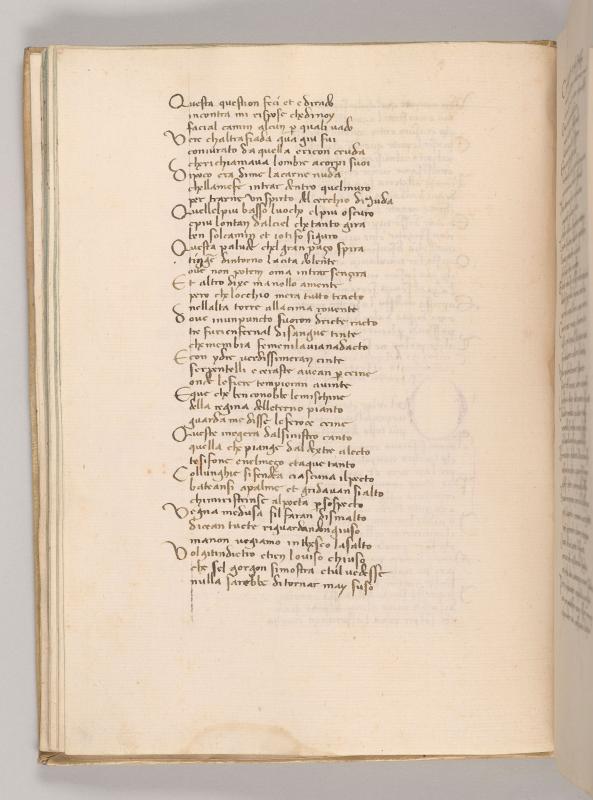 Questa question feci et e dirado
incontra mi rispose che di noy
facial camin alcun p quali vado
Vere chaltra fiada qua giu fui
coniurato da quella ericon cruda
che richiamava lombre a corpi suoi
Di poco era di me la carne nuda
chella me fe intrar dentro quel muro
per trarne un spirto del cerchio di Juda
Quelle l piu basso luocho el piu oscuro
e piu lontan dal ciel che tanto gira
ben so l camin et io ti fo siguro
Questa palude chel gran puzo spira
dintorno la cita dolente
ove non potem oma intrar senzira
Et altro dixe ma nollo a mente
pero che locchio mera tutto tracto
nellalta torre alla cima rovente
Dove in un puncto furon dricte racto
tre furie infernal di sangue tinte
che membra femenil avian ad acto
E con ydre verdissime ran cinte
serpentelli e ceraste avean p crine
onde le fiere tempi eran avinte
E que che ben conobbe le mischine
della regina delleterno pianto
guarda me disse le feroce erine
Queste megera dal sinistro canto
quella che piange dal dextre alecto
tesifone e nel mezo e taque tanto
Collunghie si fendea ciascuna il pecto
bateansi a palme et gridavan si alto
chi mi ristrinse al poeta p sospecto
Vegna medusa si l faran di smalto
dicean tucte riguardando in giuso
ma non vegiamo in theseo lasalto
Volgiti indietro e tien lo viso chiuso
che sel gorgon si mostra e tul vedesse
nulla sarebbe di tornar may suso